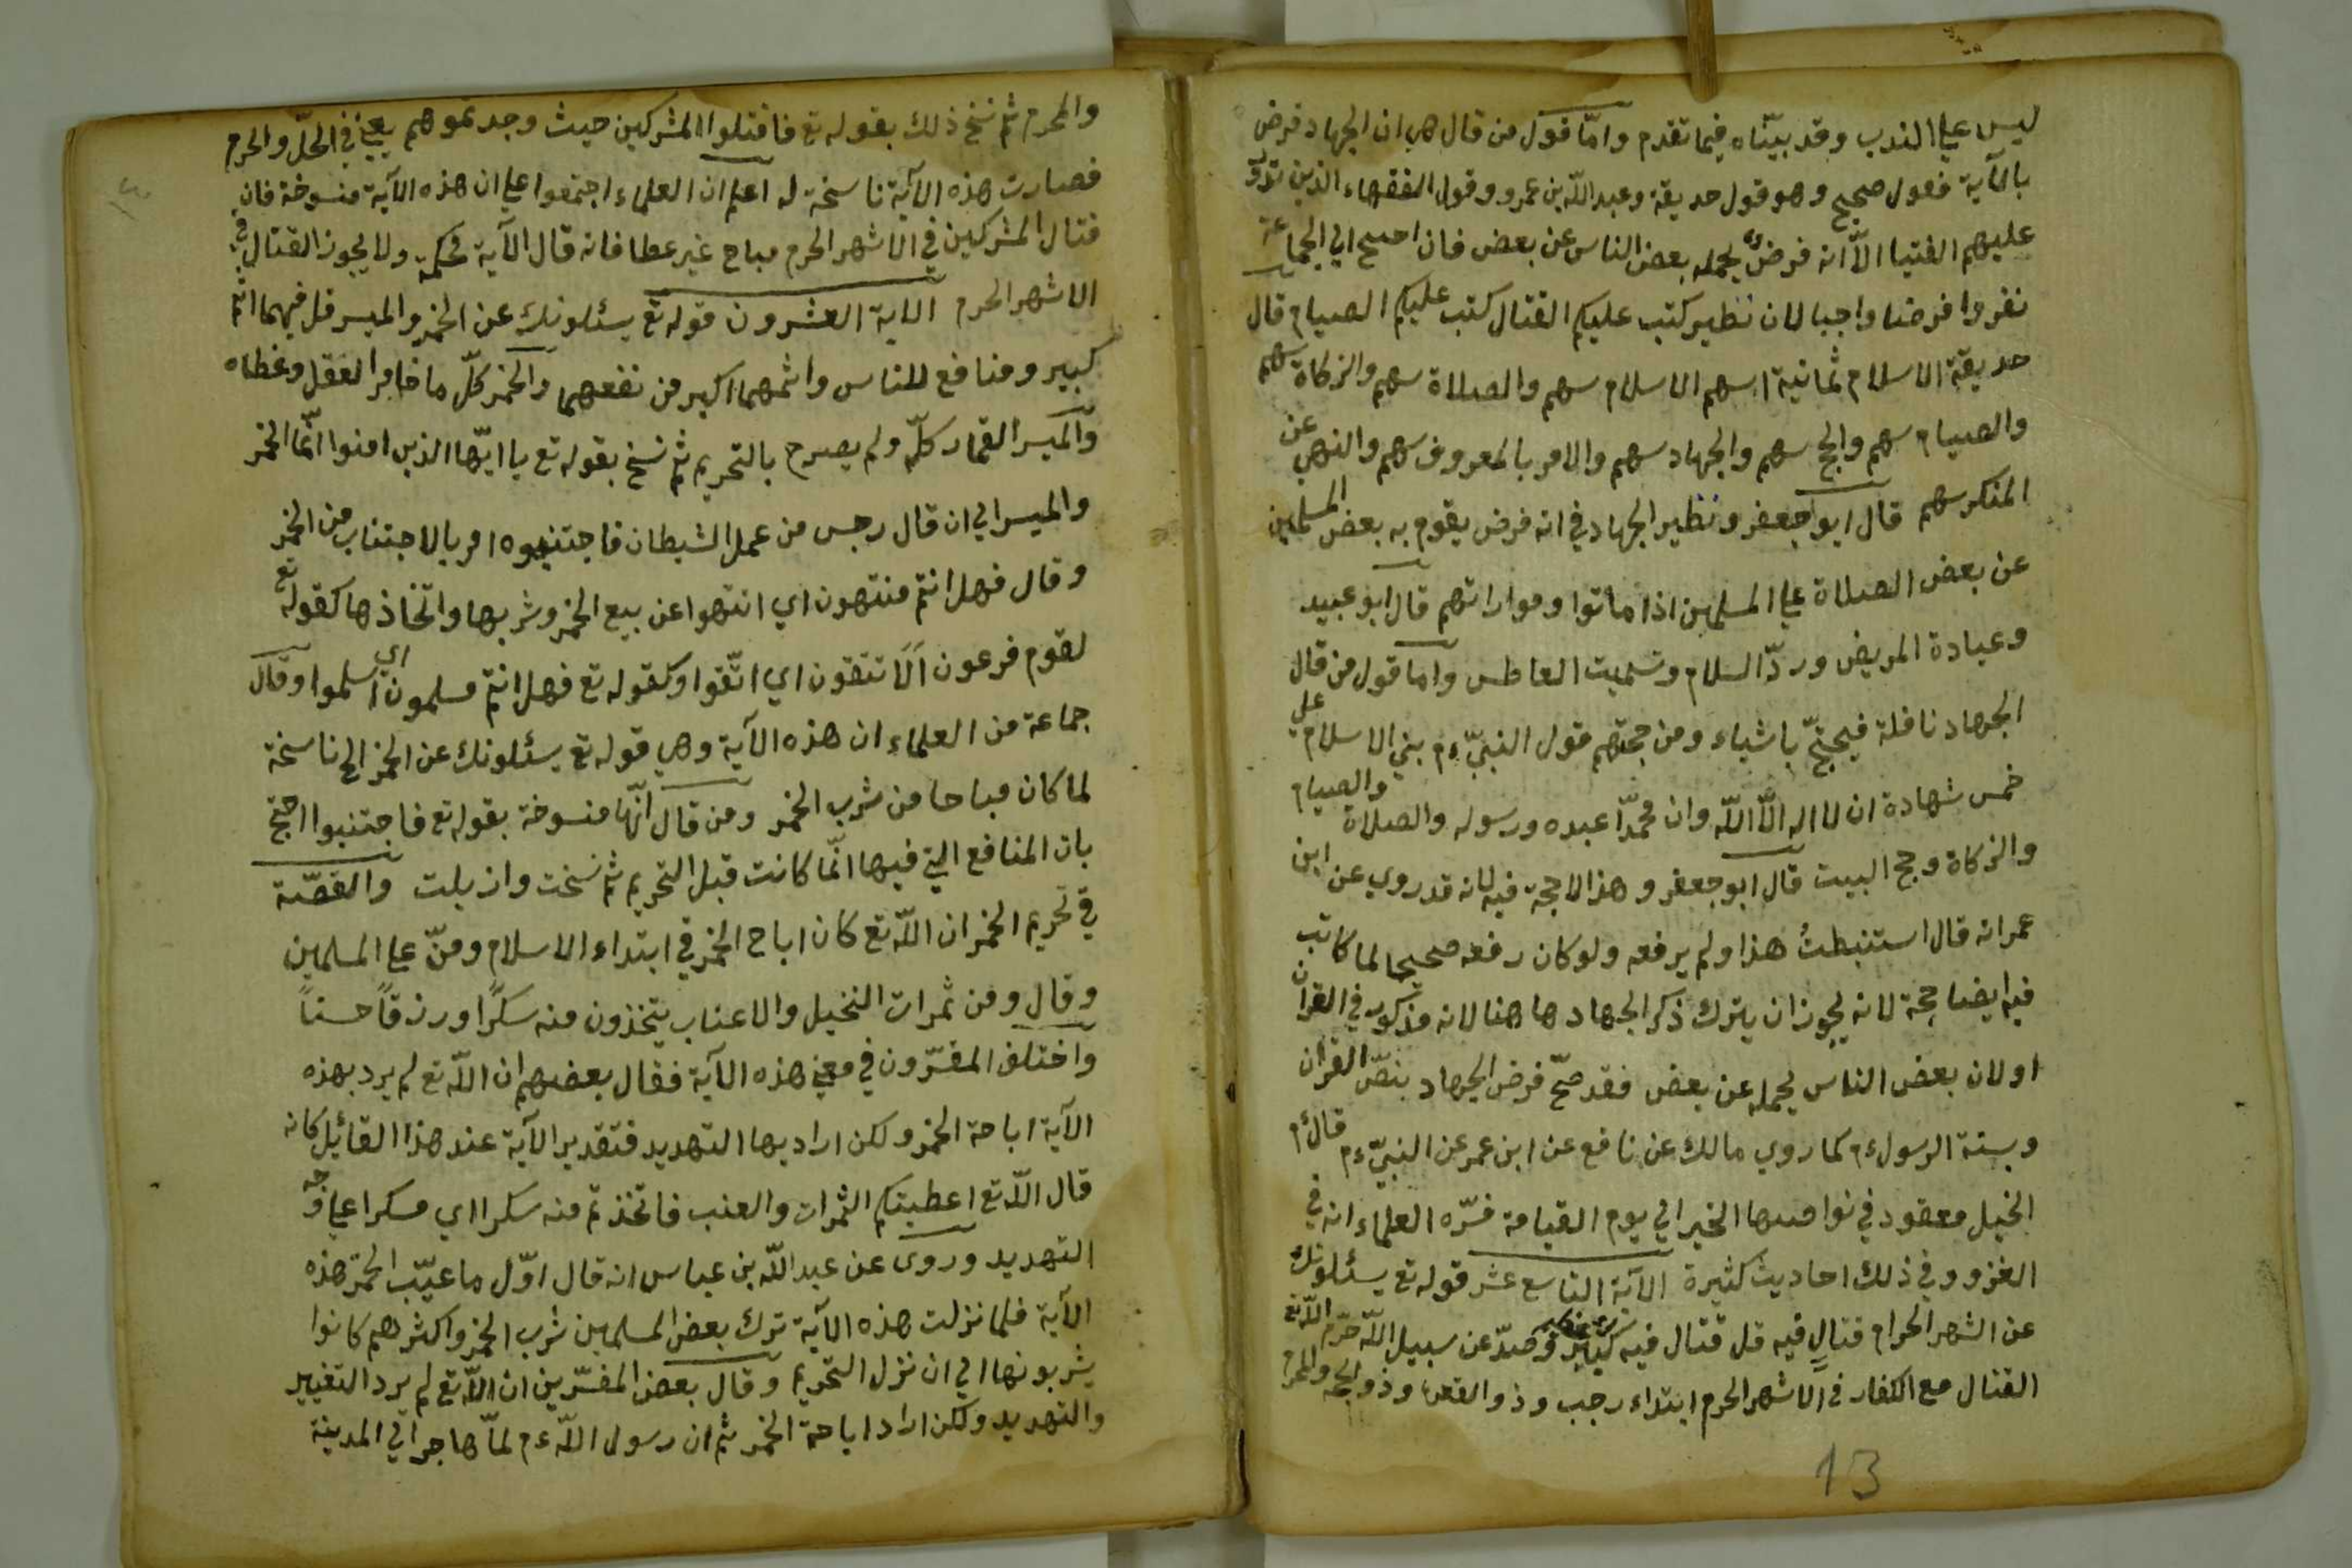 ليس علي الندب وقد بيّنّاه فيما تقدم وامّا قول من قال هي ان الجهاد فرض
بالآية فقول صحيح وهو قول حديقة وعبد اللّه بن عمرو وقول الفقهاء الذين تدور
عليهم الفتيا الاّ انه فرض يحمله بعض الناس عن بعض فان احتيج الي الجماعة
نفروا فرضا واجبا لان نظير كتب عليكم القتال كتب عليكم الصيام قال
حديقة الاسلام ثمانية اسهم الاسلام سهم والصلاة سهم والزكاة سهم
والصيام سهم والحج سهم والجهاد سهم والامر بالمعروف سهم والنهي عن
المنكر سهم قال ابو جعفر ونظير الجهاد في انه فرض يقوم به بعض المسلمين
عن بعض الصلاة علي المسلمين اذا ماتوا ومواراتهم قال ابو عبيد
وعيادة المريض وردّ السلام وتسميت العاطس واما قول من قال
الجهاد نافلة فيحتجّ باشياء ومن حجتهم قول النبيّ ءم بني الاسلام علي
خمس شهادة ان لا اله الاّ اللّه وان محمّدا عبده ورسوله والصلاة والصيام
والزكاة وحج البيت قال ابو جعفر وهذا لا حجة فيه لانه قد روي عن ابن
عمر انه قال استنبطتُ هذا ولم يرفعه ولو كان رفعه صحيحا لما كانت
فيه ايضا حجة لانه يجوز ان يترك ذكر الجهاد ها هنا لانه مذكور في القران
او لان بعض الناس يحمله عن بعض فقد صحّ فرض الجهاد بنصّ القرآن
وبسنة الرسول ءم كما روي مالك عن نافع عن ابن عمر عن النبيّ ءم قال ءم
الخيل معقود في نواصيها الخير الي يوم القيامة فسّره العلماء انه في
الغزو وفي ذلك احاديث كثيرة الآية التاسع عشر قوله تع يسئلونك
عن الشهر الحرام قتالٍ فيه قل قتال فيه كبير وصدّ عن سبيل اللّه حرّم اللّه تع
القتال مع الكفار في الاشهر الحرم ابتداء رجب وذو القعدة وذو الحجة والمحرم
13
والمحرم ثم نسخ ذلك بقوله تع فاقتلوا المشركين حيث وجدتموهم يعني في الحلّ والحرم
فصارت هذه الآية ناسخة له اعلم ان العلماء اجتمعوا علي ان هذه الآية منسوخة فان
قتال المشركين في الاشهر الحرم مباح غير عطا فانه قال الآية محكمة ولا يجوز القتال في
الاشهر الحرم الاية العشرون قوله تع يسئلونك عن الخمر والميسر قل فيهما اثم
كبير ومنافع للناس واثمهما اكبر من نفعهما والخمر كلّ ما خامر العقل وغطاه
والميسر القمار كلّه ولم يصرح بالتحريم ثم نسخ بقوله تع يا ايّها الذين امنوا انّما الخمر
والميسر الي ان قال رجس من عمل الشيطان فاجتنبوه امر بالاجتناب من الخمر
وقال فهل انتم منتهون اي انتهوا عن بيع الخمر وشربها واتخاذها كقوله تع
لقوم فرعون اَلَا تتقون اي اتّقوا وكقوله تع فهل انتم مسلمون اي اسلموا وقال
جماعة من العلماء ان هذه الآية وهي قوله تع يسئلونك عن الخمر الخ ناسخة
لما كان مباحا من شرب الخمر ومن قال انّها منسوخة بقوله تع فاجتنبوا احتج
بان المنافع التي فيها انّما كانت قبل التحريم ثم نسخت وازيلت والقصّة
في تحريم الخمر ان اللّه تع كان اباح الخمر في ابتداء الاسلام ومنّ علي المسلمين
وقال ومن ثمرات النخيل والاعناب يتخذون منه سكرًا ورزقًا حسنًا
واختلف المفسّرون في معني هذه الآية فقال بعضهم ان اللّه تع لم يرد بهذه
الآية اباحة الخمر ولكن اراد بها التهديد فتقدير الآية عند هذا القائيل كانه
قال اللّه تع اعطيتكم الثمرات والعنب فاتخذتم منه سكرا اي مسكرا علي وجه
التهديد وروى عن عبد اللّه بن عباس انه قال اوّل ما عيّب الخمر هذه
الآية فلما نزلت هذه الآية ترك بعض المسلمين شرب الخمر واكثرهم كانوا
يشربونها الي ان نزل التحريم وقال بعض المفسّرين ان اللّه تع لم يرد التغيير
والتهديد ولكن اراد اباحة الخمر ثم ان رسول اللّه ءم لمّا هاجر الي المدينة